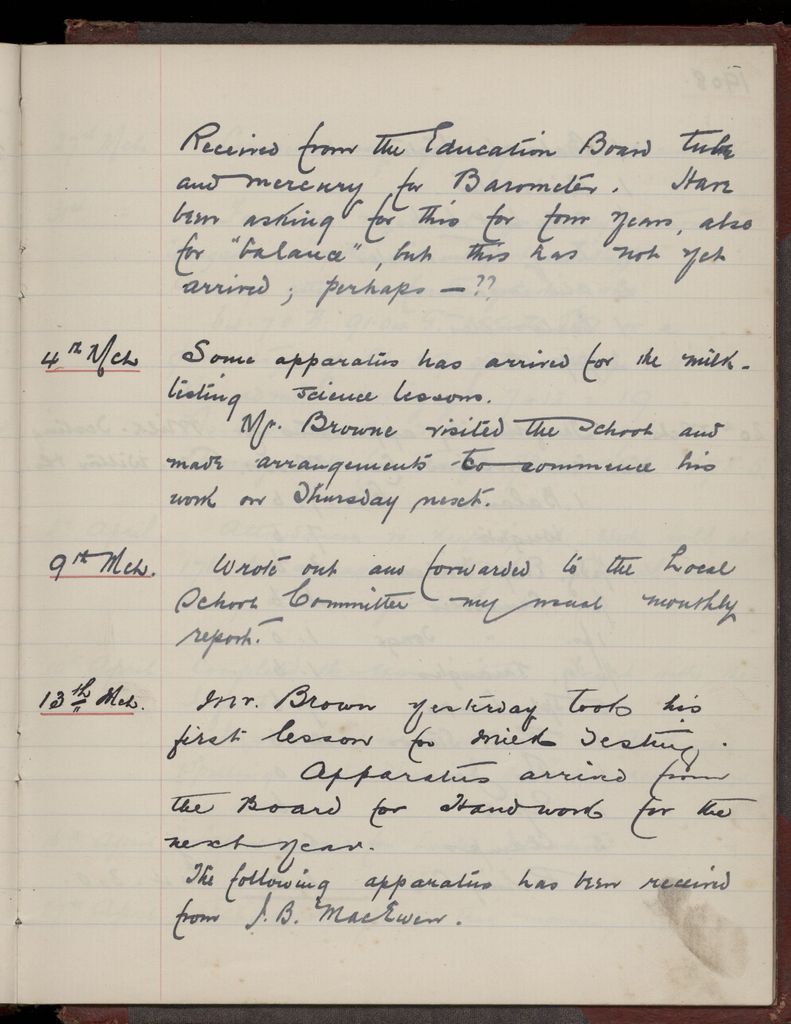 Received from the Education Board tube
and mercury for Barometer. Have
been asking for this for four years, also
for "balance", but this has not yet
arrived; perhaps — ??
4th Mch Some apparatus has arrived for the milk-
testing science lessons.
Mr. Browne visited the School and
made arrangements to commence his
work on Thursday next.
9th Mch. Wrote out and forwarded to the Local
School Committee my usual monthly
report.
13th Mch. Mr. Brown yesterday took his
first lesson for Milk Testing.
Apparatus arrived from
the Board for Handwork for the
next year.
The following apparatus has been received
from J. B. MacEwen.